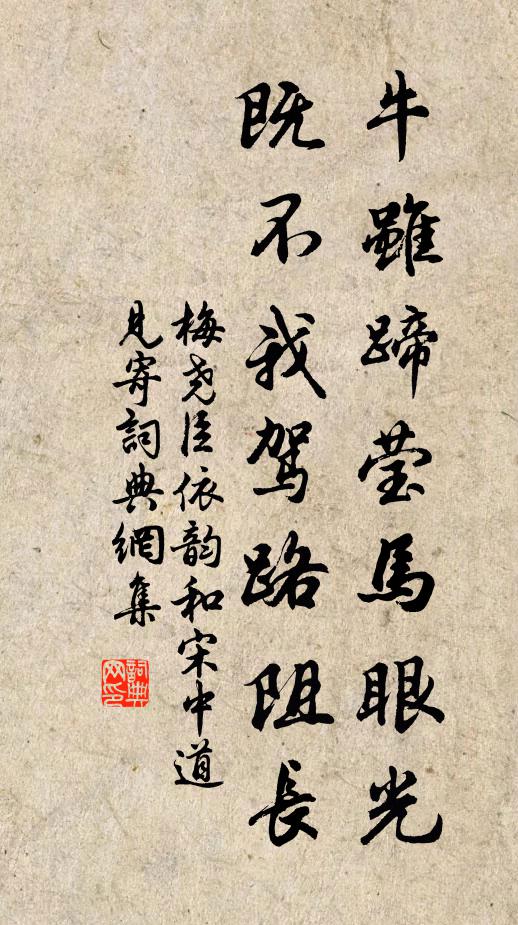 牛雖蹄莹馬眼光
既不我駕路阻長
梅尧臣依韵和宋中道
見寄詞典網集
詞典网印